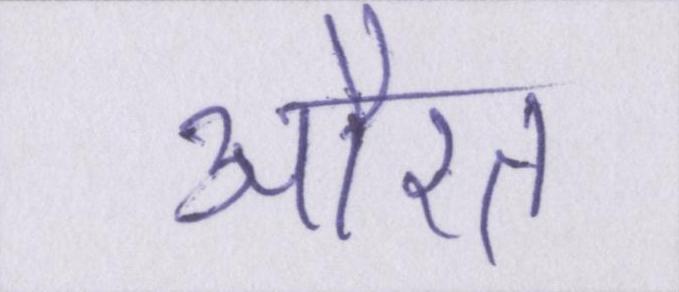 औरत